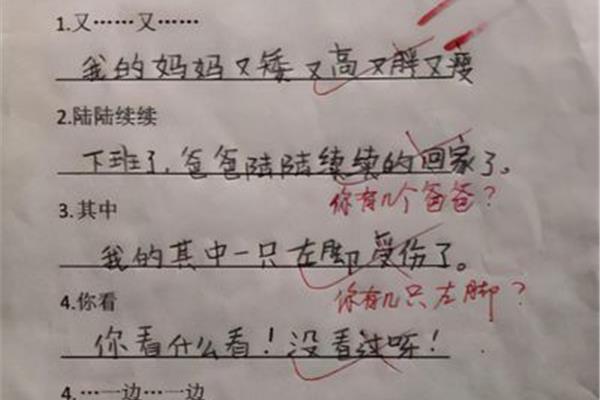 1.又……又……
我的妈妈又矮又高又胖又瘦
2.陆陆续续
下班了,爸爸陆陆续续的回家了。
你有几个爸爸?
3.其中
我的其中一只左脚受伤了。
你有几只左脚?
4.你看
你看什么看!没看过呀!
4.…一边…一边